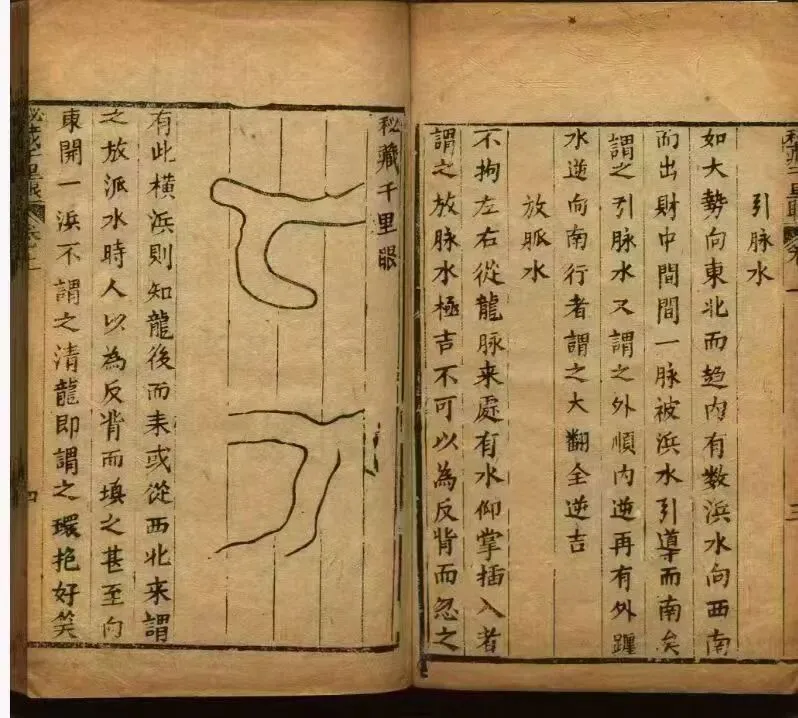 秘藏千里眼
三
引脉水
如大勢向東北而趋内有数浜水向西南
而出財中間間一脉被浜水引導而南矣
謂之引脉水又謂之外順内逆再有外躔
水逆向南行者謂之大翻全逆吉
放脈水
不拘左右從龍脉来處有水仰掌插入者
謂之放脉水極吉不可以為反背而忽之
秘藏千里眼
有此横浜則知龍後而来或從西北来謂
之放派水時人以為反背而填之甚至向
東開一浜不謂之清龍即謂之環抱好笑
秘藏千里眼
四